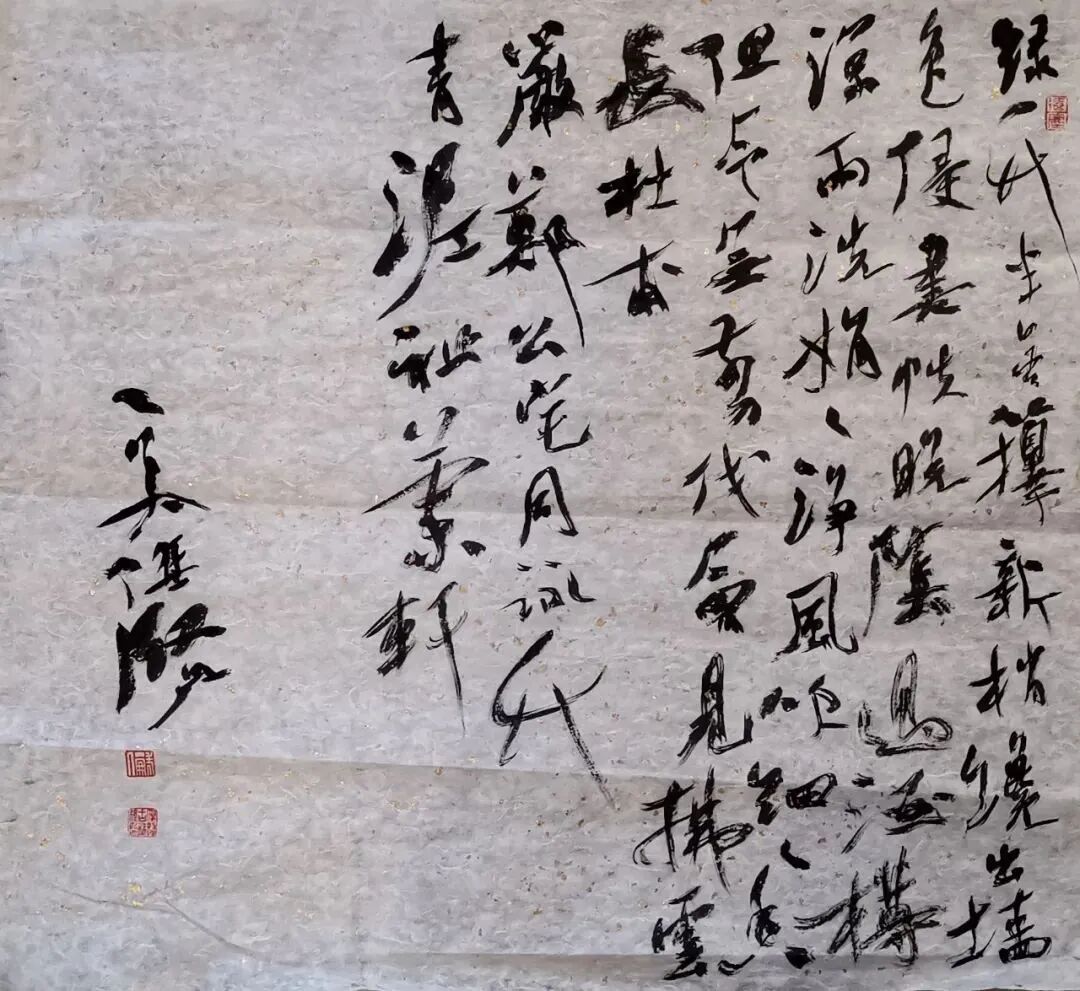 緑竹半含籜新梢纔出墙
色侵書帙晚陰過酒樽
涼雨洗娟〻淨風吹細〻香
但令無剪伐會見拂雲
長杜甫
嚴鄭公宅同詠竹
青軒